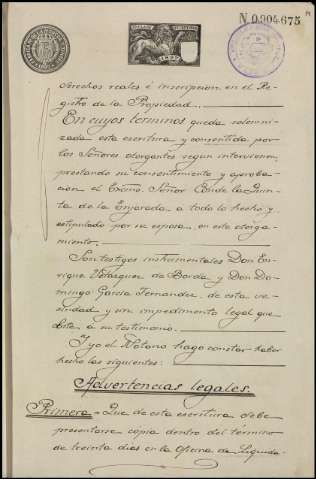 N. 0.904.675
derechos reales é inscripcion en el Re-
gistro de la Propiedad.
En cuyos términos queda solemni-
zada esta escritura y consentida por
los Señores otorgantes segun intervienen,
prestando su consentimiento y aproba-
cion el Excmo. Señor Conde de la Quin-
ta de la Enjarada a todo lo hecho y
estipulado por su esposa en este otorga-
miento.
Son testigos instrumentales Don En-
rique Velazquez de Borda y Don Do-
mingo Garcia Fernandez, de esta ve-
cindad y sin impedimento legal que
obste, a su testimonio.
Y yo el Notario hago constar haber
hecho las siguientes:
Advertencias legales.
Primera = Que de esta escritura debe
presentarse copia dentro del término
de treinta dias en la Oficina de Liquida-